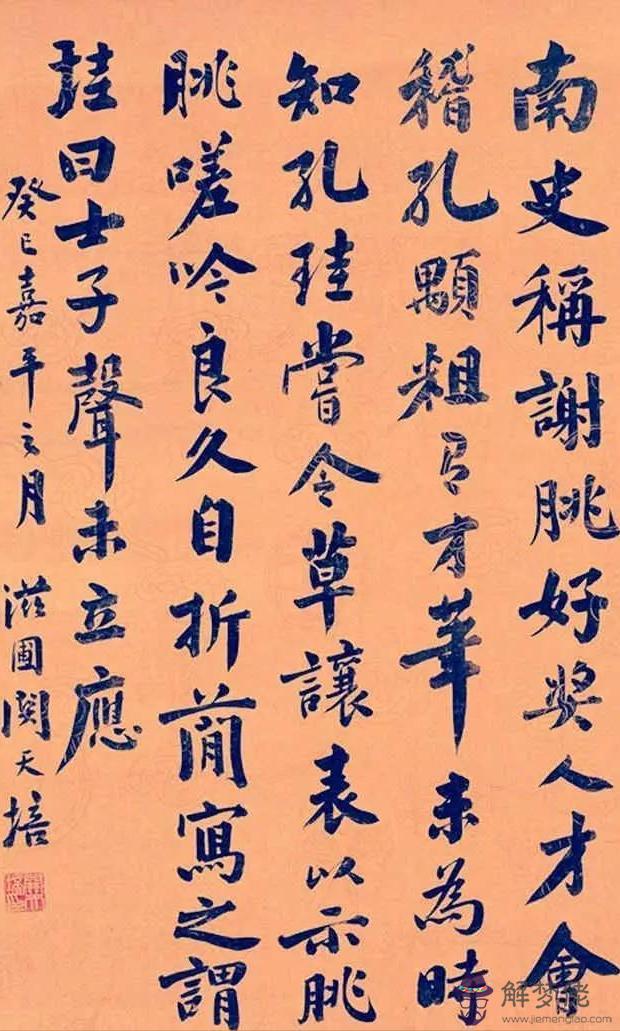 南史稱謝朓好奬人才會
稽孔顗粗有才華未為時
知孔珪嘗令草讓表以示朓
朓嗟吟良久自折簡寫之謂
珪曰士子聲未立應
癸巳嘉平之月 滋圃関天培
解梦佬
www.jiemenglao.com